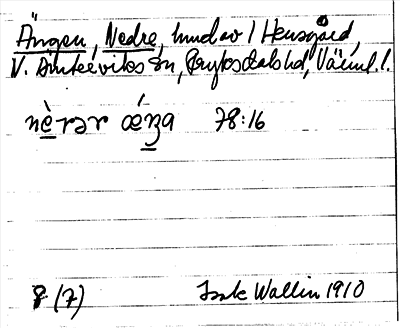 Ängen, Nedre, hmd av 1 Hensgård,
V. Ämterviks sn, Fryksdals hd, Värml. l.
nè̱rər ǽŋ̱a 78:16
8 (7) Isak Wallin 1910